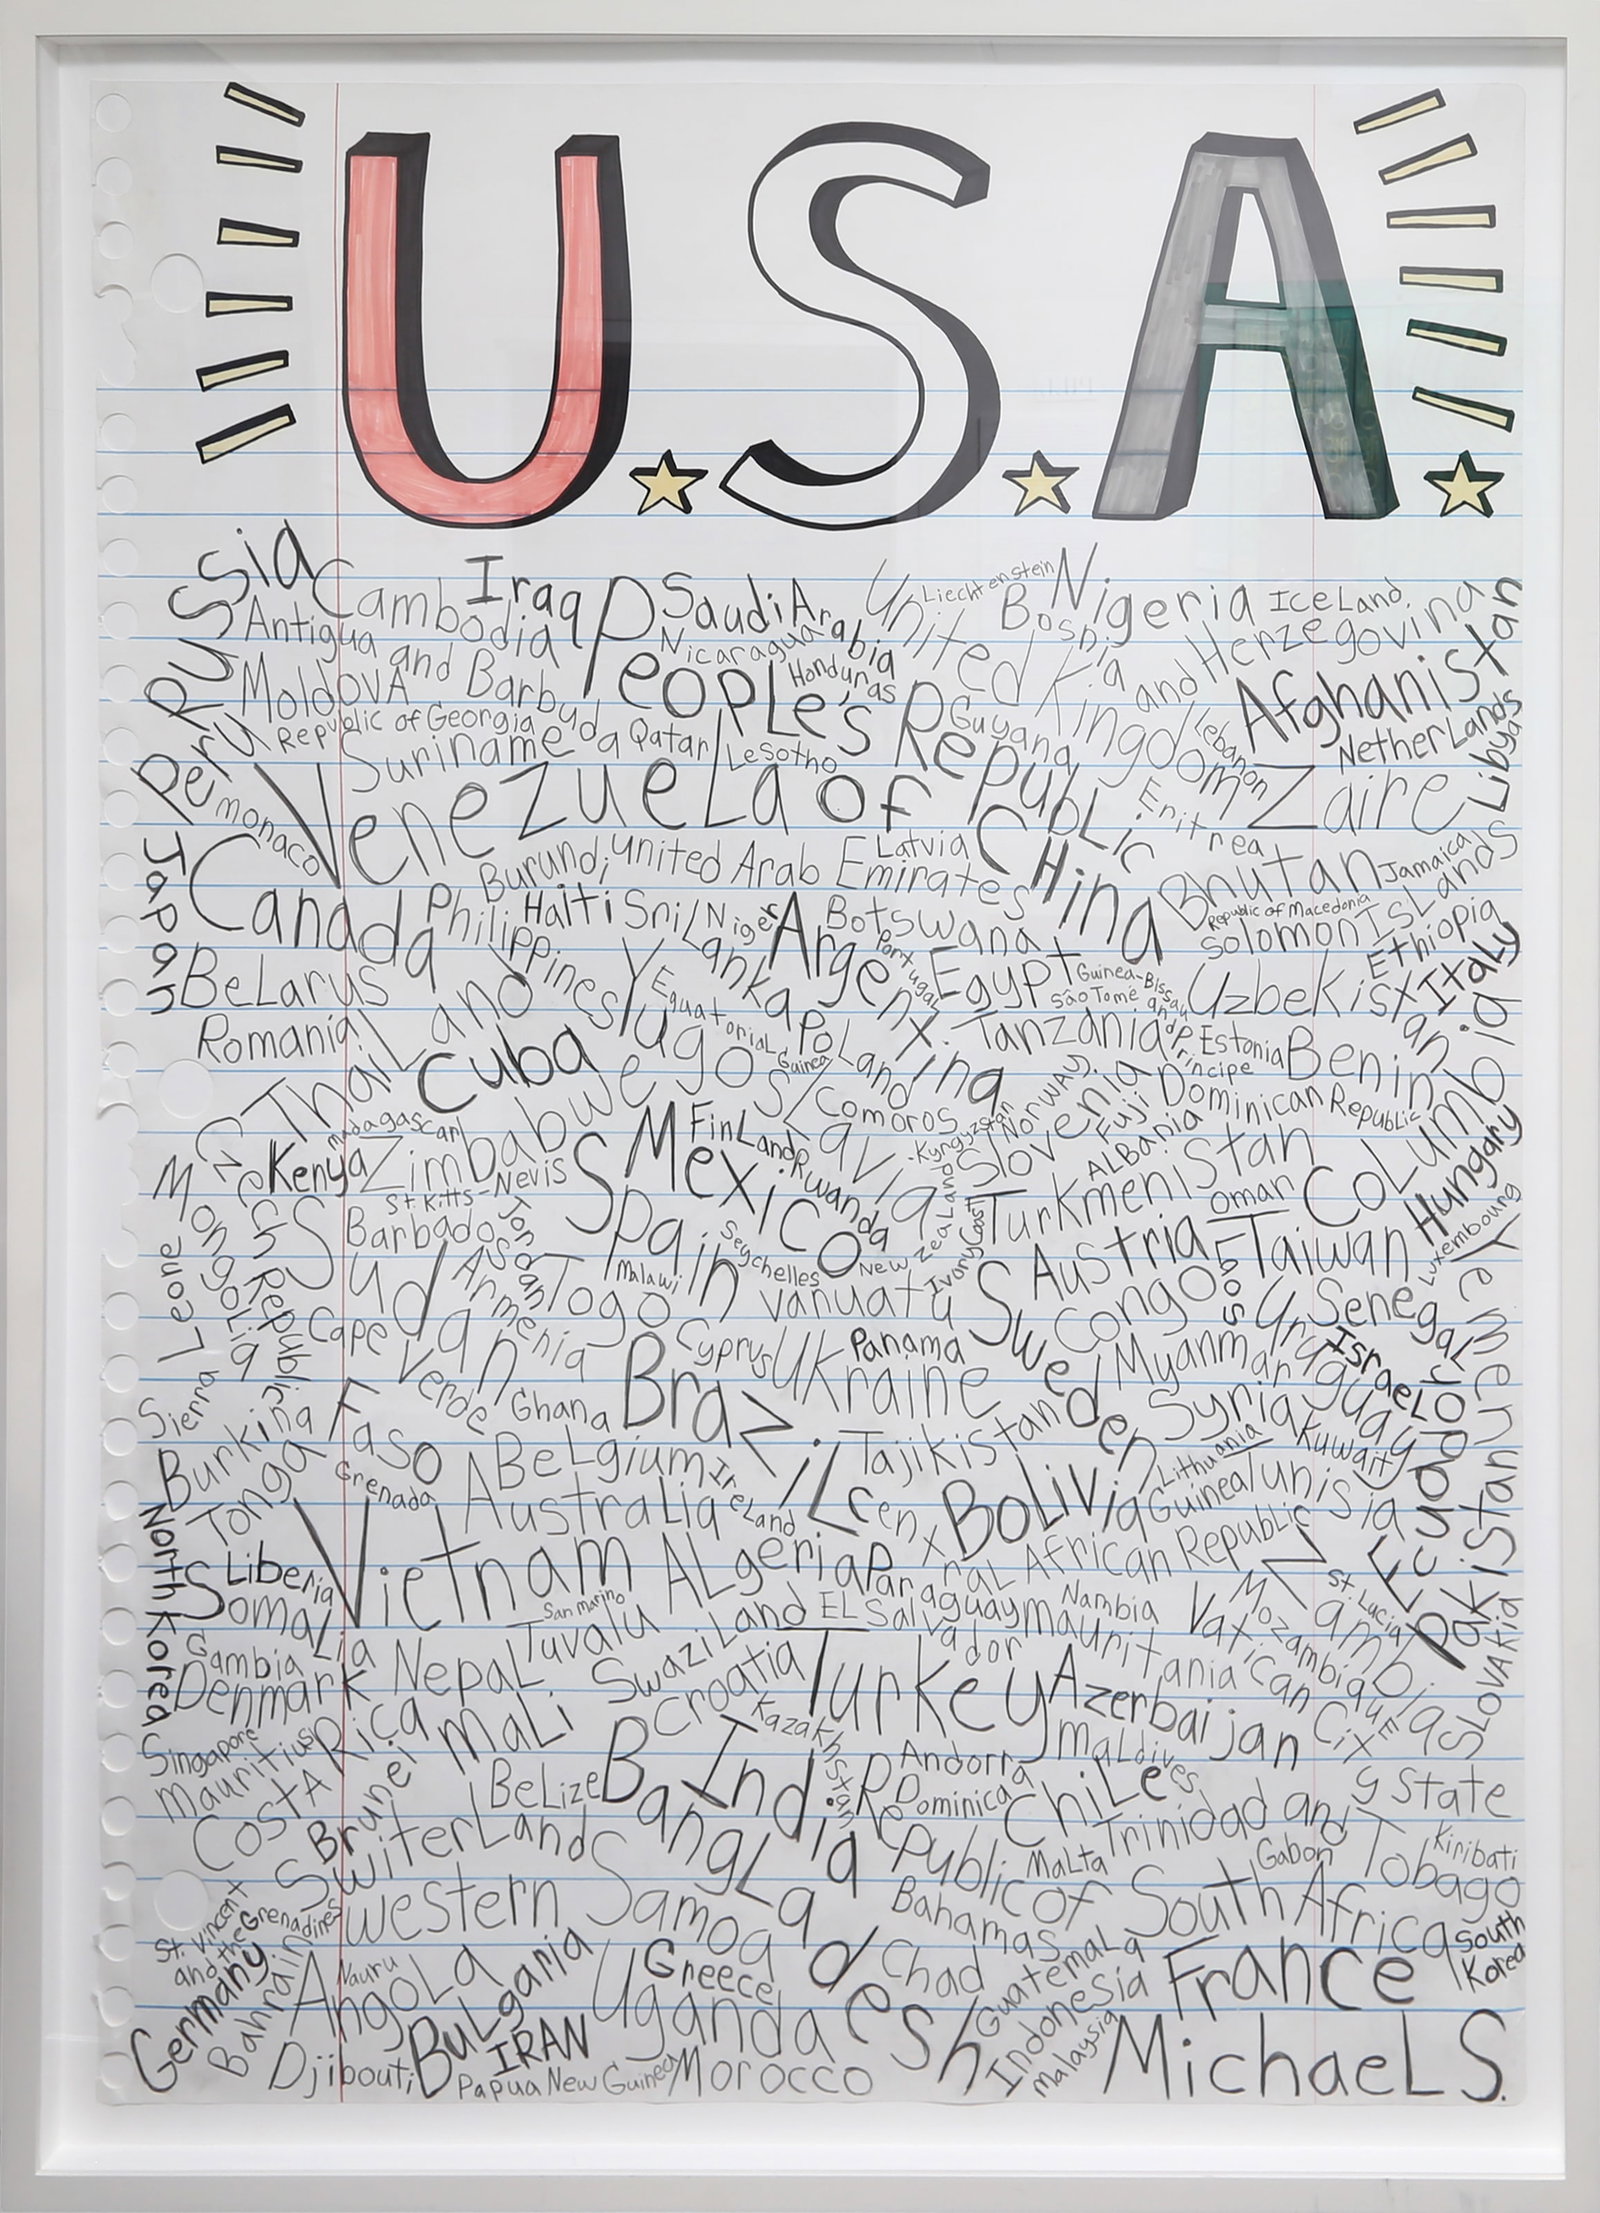 U.S.A.
Russia
Cambodia
Iraq
Saudi Arabia
United Kingdom
Liechtenstein
Nigeria
IceLand
Bosnia and Herzegovina
Antigua and Barbuda
Nicaragua
Honduras
PeopLe's RepubLic of China
Afghanistan
MoldovA
Republic of Georgia
Qatar
Lesotho
Guyana
Lebanon
NetherLands
Libya
Peru
Suriname
VenezueLa
Zaire
Eritrea
monaco
Japan
Canada
Burundi
United Arab Emirates
Latvia
Bhutan
Jamaica
Republic of Macedonia
SoLomon ISLands
Philippines
Haiti
SriLanka
Niger
Argentina
Botswana
Portugal
Egypt
Guinea-Bissau
São Tomé and Principe
Uzbekistan
Ethiopia
Italy
BeLarus
Romania
ThaiLand
Cuba
YugosLavia
EquatoriaL Guinea
PoLand
Tanzania
Estonia
Benin
CoLumbia
Czech Republic
Kenya
madagascar
Zimbabwe
Comoros
Kyrgyzstan
Norway
SLovenia
Fuji
Dominican RepubLic
ALBania
St. Kitts-Nevis
Mexico
FinLand
Rwanda
Turkmenistan
Oman
Hungary
MongoLia
Sudan
Barbados
Jordan
Spain
Seychelles
New ZeaLand
Ivory Coast
Austria
Laos
Taiwan
Luxembourg
Yemen
Sierra Leone
Armenia
Togo
Malawi
Vanuatu
Sweden
Congo
Uruguay
SenegaL
IsraeL
Cape Verde
Cyprus
Ukraine
Panama
Myanmar
Ghana
BraziL
Tajikistan
Syria
Kuwait
Ecuador
Burkina Faso
Tonga
Grenada
BeLgium
AustraLia
IreLand
CentraL African RepubLic
BoLivia
Lithuania
Guinea
Tunisia
Pakistan
North Korea
Liberia
SomaLia
Vietnam
ALgeria
Paraguay
Zambia
St. Lucia
SLOVAKia
San Marino
Tuvalu
SwaziLand
EL SaLvador
Mauritania
Nambia
Vatican City State
MozambiquE
Gambia
Denmark
NepaL
Croatia
Turkey
Azerbaijan
Singapore
Mauritius
CostA Rica
Brunei
MaLi
Kazakhstan
Andorra
maLdives
BeLize
BangLadesh
India
Republic of South Africa
Dominica
ChiLe
Trinidad and Tobago
SwiterLand
MaLta
Gabon
Kiribati
St. Vincent and the Grenadines
Western Samoa
Bahamas
Germany
Bahrain
Nauru
AngoLa
BuLgaria
Uganda
Greece
Chad
GuatemaLa
Indonesia
France
South Korea
Djibouti
IRAN
Papua New Guinea
Morocco
Malaysia
MichaeL S.